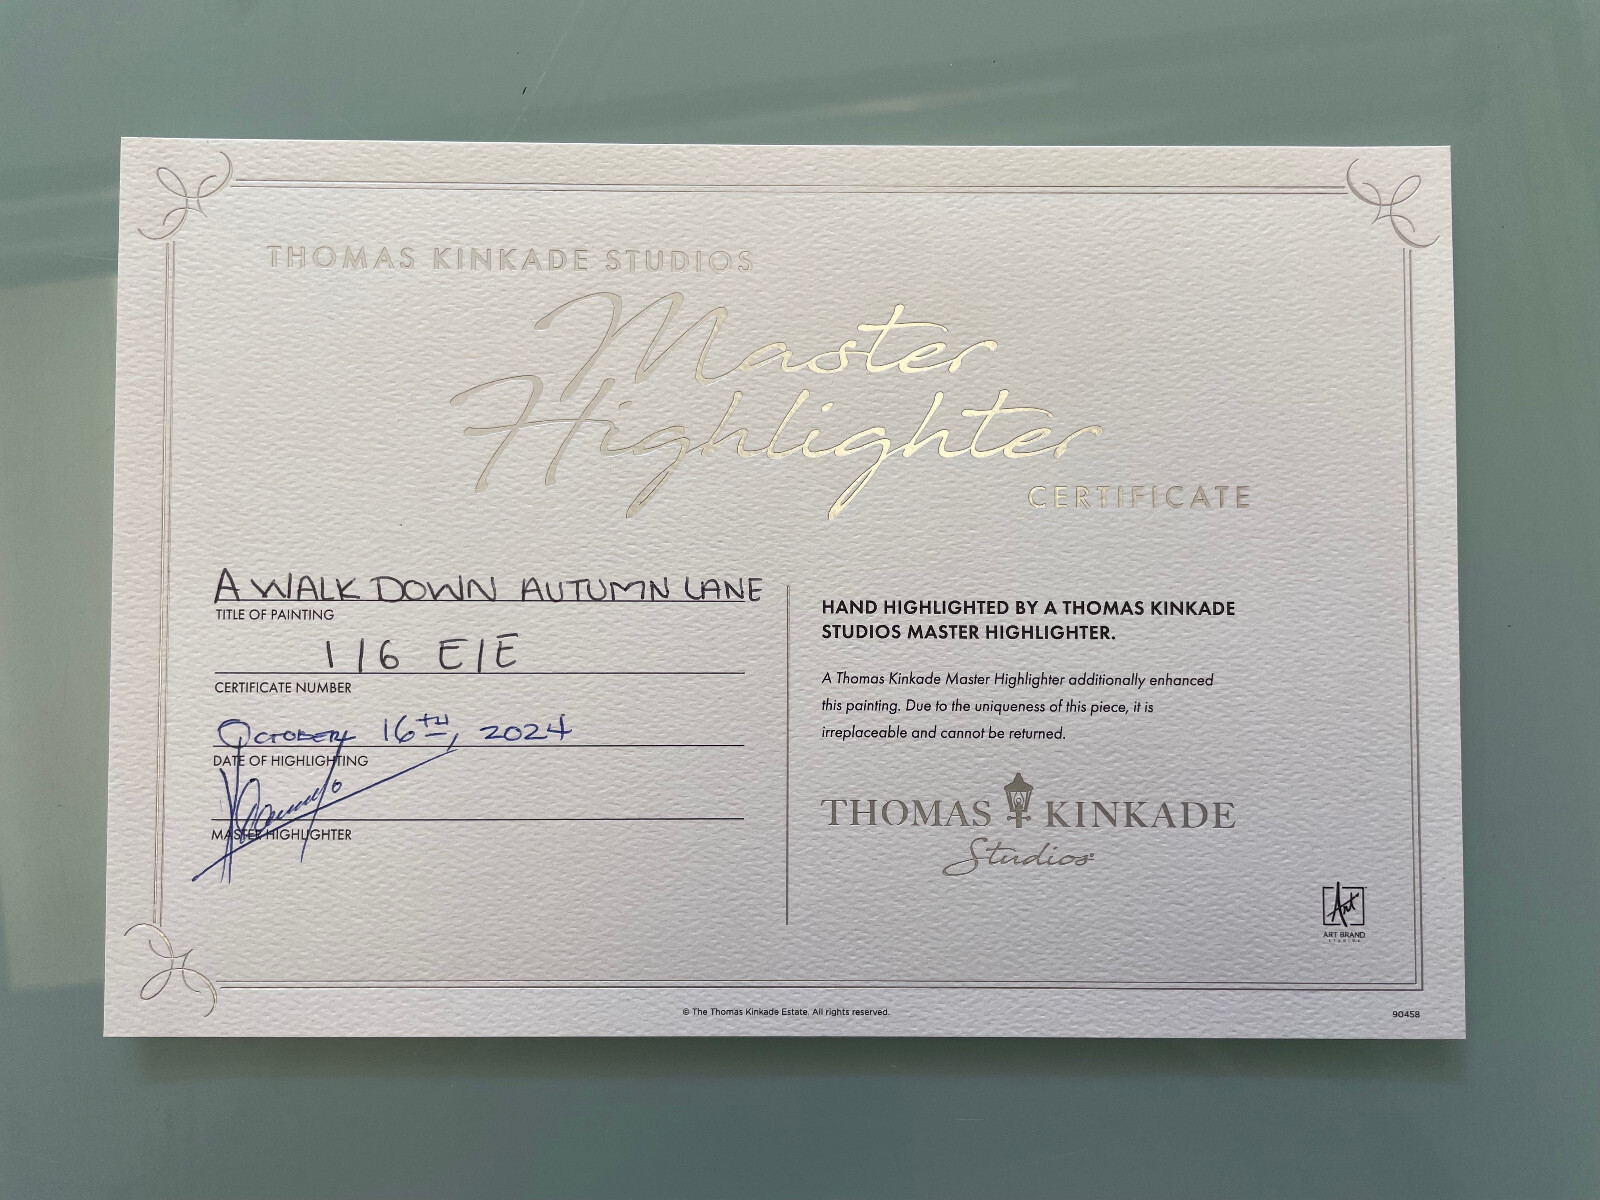 THOMAS KINKADE STUDIOS
Master
Highlighter
CERTIFICATE
A WALK DOWN AUTUMN LANE
TITLE OF PAINTING
116 E/E
CERTIFICATE NUMBER
OCTOBER 16TH, 2024
DATE OF HIGHLIGHTING
MASTER HIGHLIGHTER
HAND HIGHLIGHTED BY A THOMAS KINKADE
STUDIOS MASTER HIGHLIGHTER.
A Thomas Kinkade Master Highlighter additionally enhanced
this painting. Due to the uniqueness of this piece, it is
irreplaceable and cannot be returned.
THOMAS KINKADE
Studios
Art
ART BRAND
STUDIOS
© The Thomas Kinkade Estate. All rights reserved.
90458